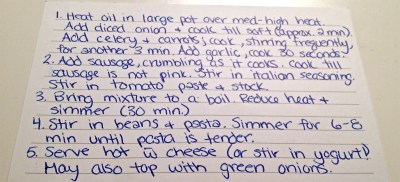 1. Heat oil in large pot over med-high heat.
Add diced onion & cook till soft (approx. 2 min).
Add celery & carrots; cook, stirring frequently,
for another 3 min. Add garlic, cook 30 seconds.
2. Add sausage, crumbling as it cooks. Cook till
sausage is not pink. Stir in italian seasoning.
Stir in tomato paste & stock.
3. Bring mixture to a boil. Reduce heat &
simmer (30 min)
4. Stir in beans & pasta. Simmer for 6-8
min until pasta is tender.
5. Serve hot w cheese (or stir in yogurt)!
May also top with green onions.